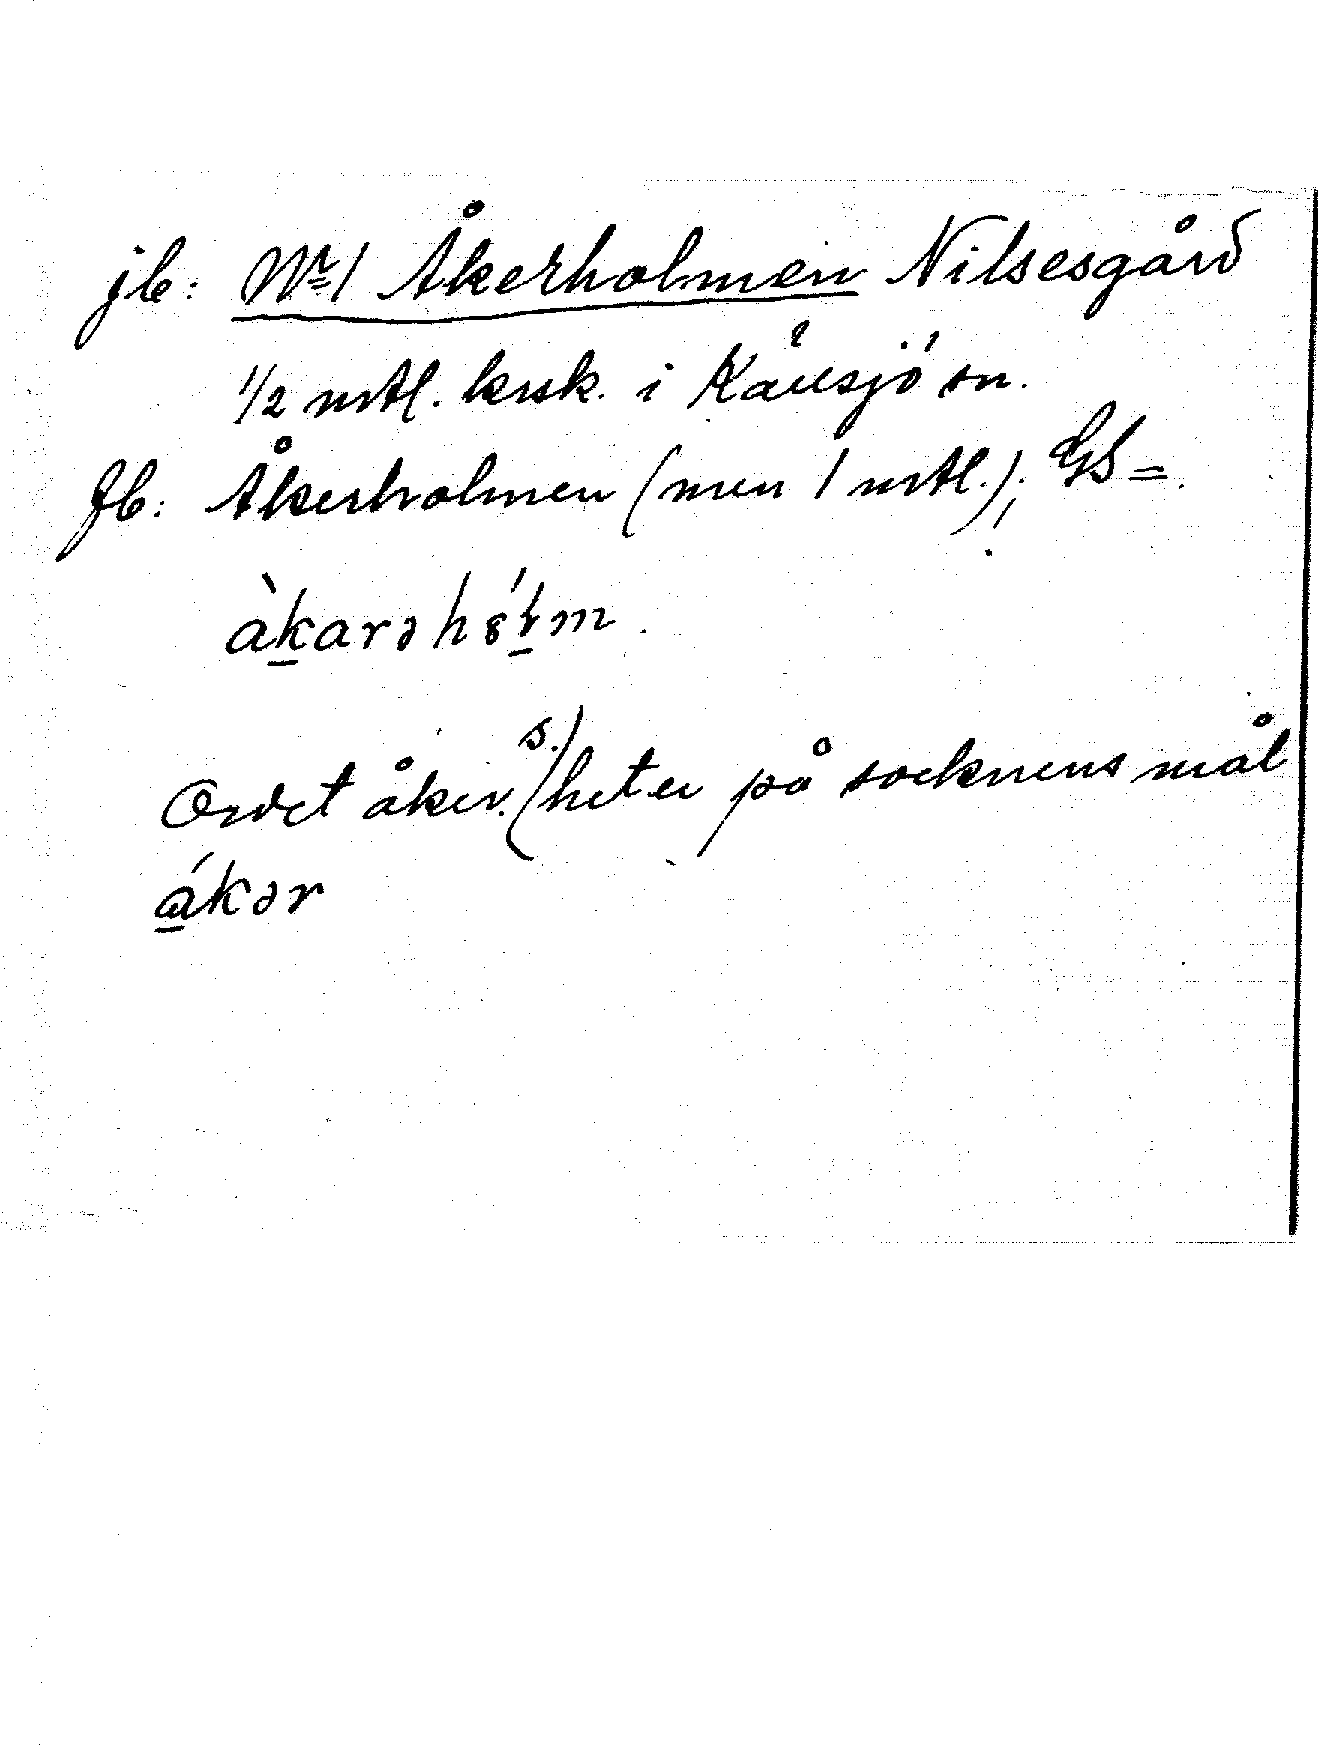 jb: Nr 1 Åkerholmen Nilsesgård
1/2 mtl. krsk. i Kållsjö sn.
Jb: Åkerholmen (men 1 mtl.); GS =
àkarəhó̤ɫm.
Ordet åker. s.) heter på socknens mål
ákər